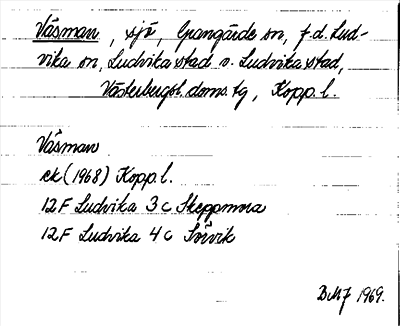 Väsman, sjö, Grangärde sn, f.d. Lud-
vika sn, Ludvika stad o. Ludvika stad,
Västerbergsl. doms tg, Kopp. l.
Väsman
ek (1968) Kopp. l.
12F Ludvika 3c Skeppmora
12F Ludvika 4c Sörvik
1969.